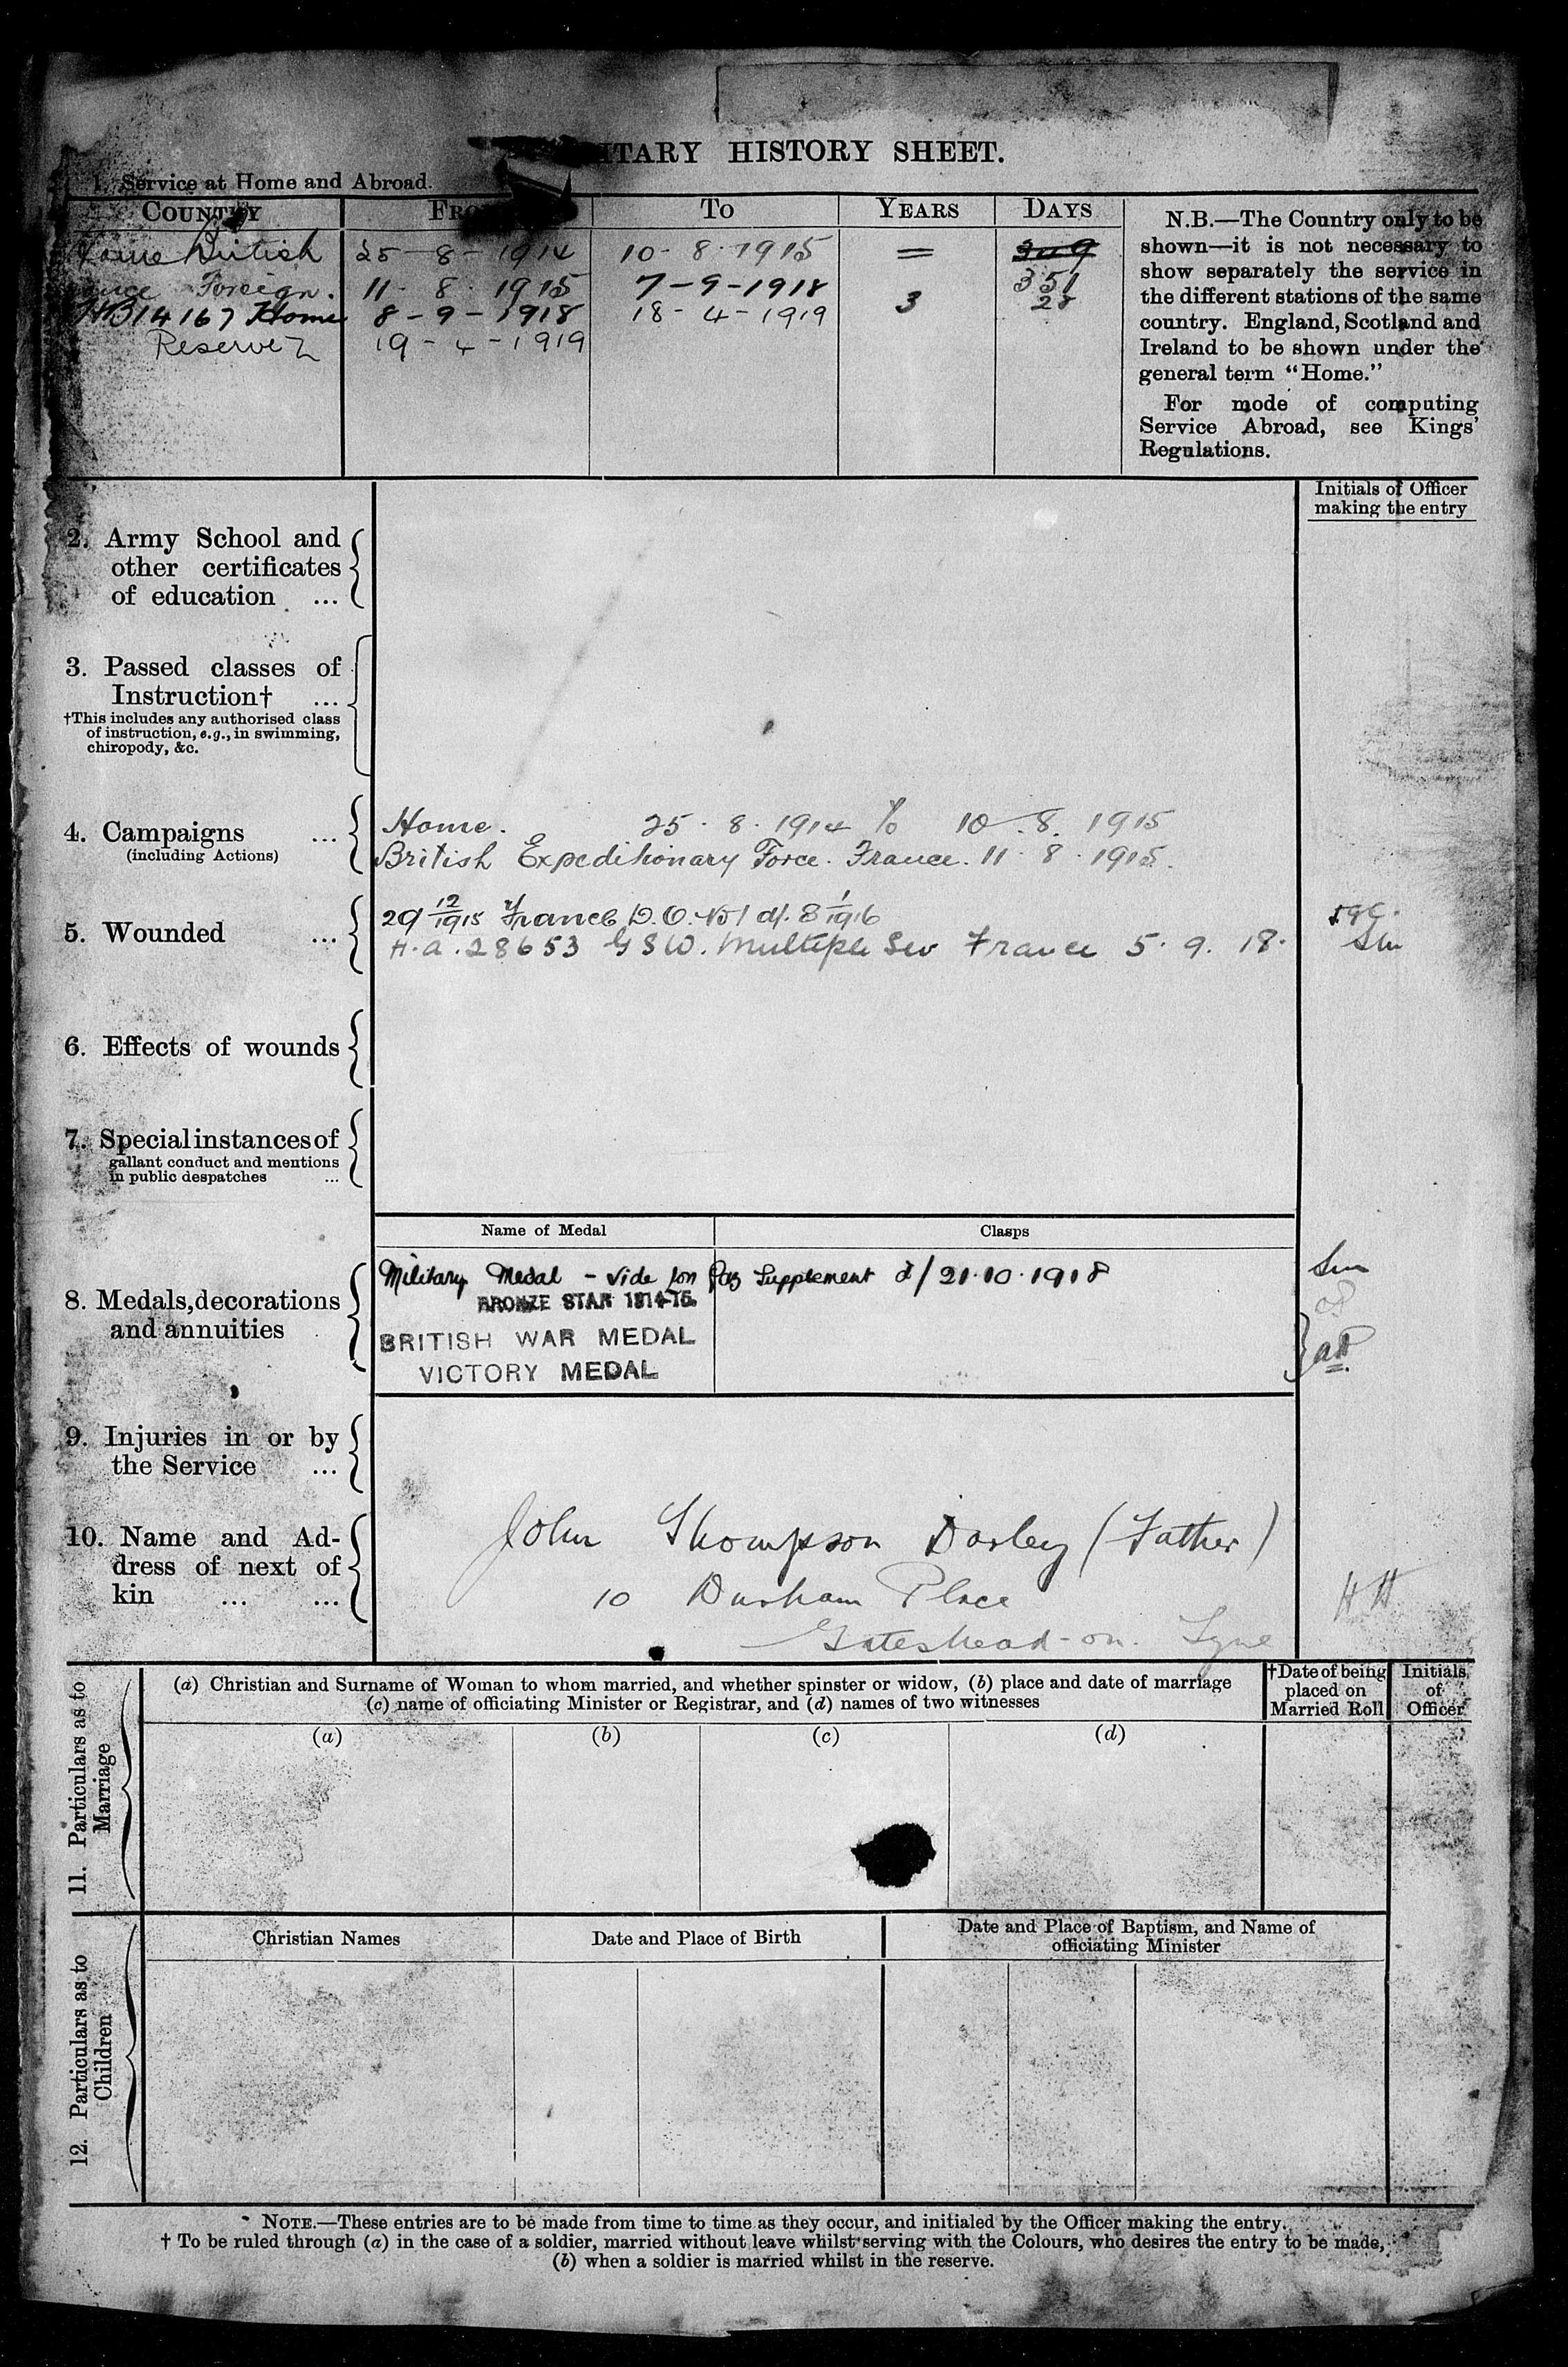 ITARY HISTORY SHEET.
1. Service at Home and Abroad.
COUNTRY FRO TO YEARS DAYS
Home British 25-8-1914 10-8-1915 =
Foreign. 11.8.1915 7-9-1918 351
HB14167 Home 8-9-1918 18-4-1919 3 28
Reserve Z 19-4-1919
N.B.—The Country only to be
shown—it is not necessary to
show separately the service in
the different stations of the same
country. England, Scotland and
Ireland to be shown under the
general term "Home."
For mode of computing
Service Abroad, see Kings'
Regulations.
Initials of Officer
making the entry
2. Army School and
other certificates
of education ...
3. Passed classes of
Instruction† ...
†This includes any authorised class
of instruction, e.g., in swimming,
chiropody, &c.
4. Campaigns ...
(including Actions)
Home. 25.8.1914 to 10.8.1915
British Expeditionary Force. France. 11.8.1915.
5. Wounded ...
29 12/1915 France D.O. No 1 d/. 8 1/1916
H.A.28653 GSW. Multiple Sev France 5.9.18.
6. Effects of wounds
7. Special instances of
gallant conduct and mentions
in public despatches ...
Name of Medal Clasps
8. Medals, decorations
and annuities
Military Medal - Vide Lon Gaz Supplement d/ 21.10.1918
BRONZE STAR 1914-15.
BRITISH WAR MEDAL
VICTORY MEDAL
9. Injuries in or by
the Service ...
10. Name and Ad-
dress of next of
kin ... ...
John Thompson Darley (Father)
10 Durham Place
Gateshead-on-Tyne
HH
11. Particulars as to
Marriage
(a) Christian and Surname of Woman to whom married, and whether spinster or widow, (b) place and date of marriage
(c) name of officiating Minister or Registrar, and (d) names of two witnesses
†Date of being
placed on
Married Roll
Initials
of
Officer
(a) (b) (c) (d)
12. Particulars as to
Children
Christian Names
Date and Place of Birth
Date and Place of Baptism, and Name of
officiating Minister
NOTE.—These entries are to be made from time to time as they occur, and initialed by the Officer making the entry.
† To be ruled through (a) in the case of a soldier, married without leave whilst serving with the Colours, who desires the entry to be made,
(b) when a soldier is married whilst in the reserve.